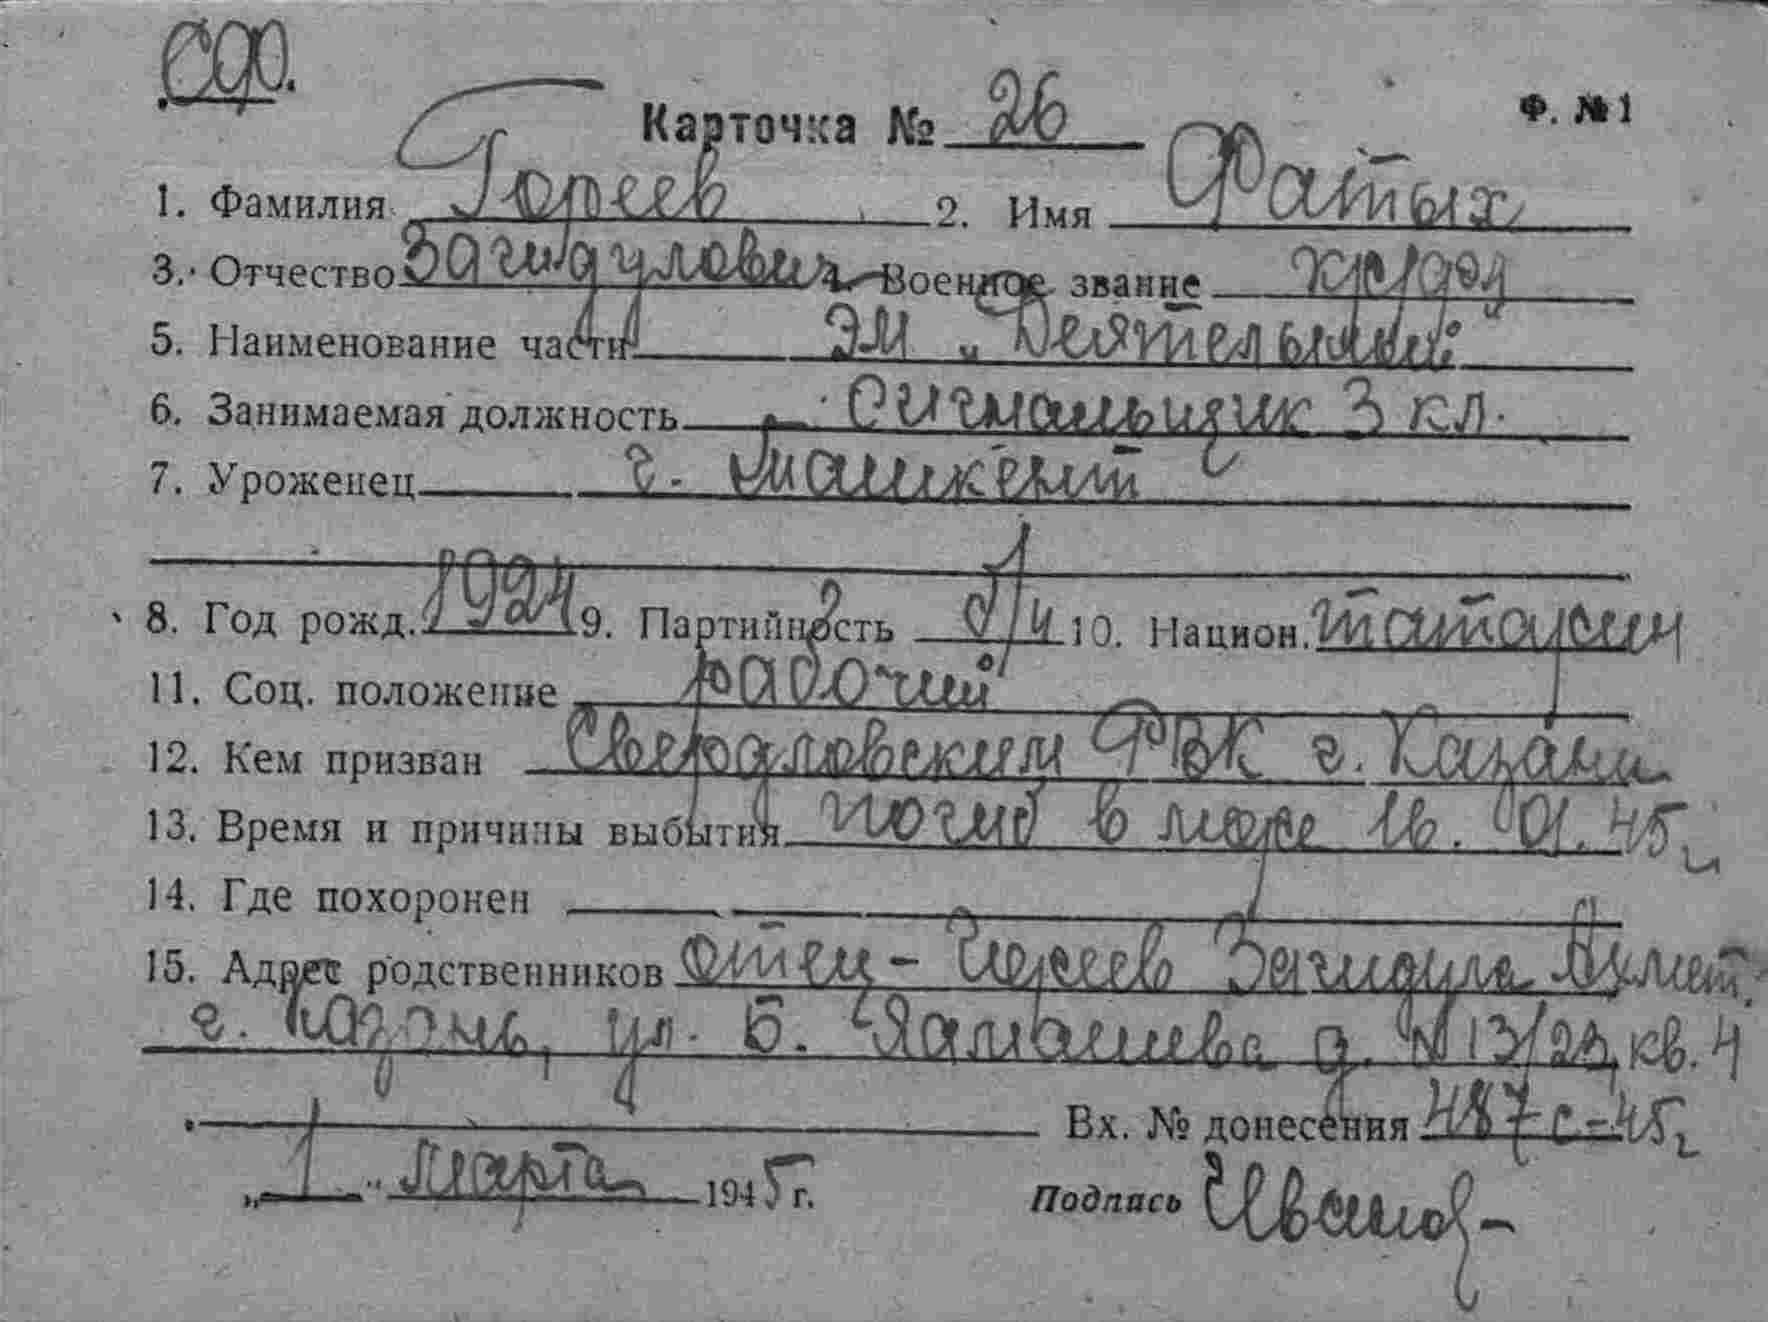 СФ.
Карточка № 26 Ф. №1
1. Фамилия Гореев 2. Имя Фатых
3. Отчество Загидулович 4. Военное звание кр/фл
5. Наименование части ЭМ „Деятельный"
6. Занимаемая должность Сигнальщик 3 кл.
7. Уроженец г. Ташкент
8. Год рожд. 1924 9. Партийность б/п 10. Национ. татарин
11. Соц. положение рабочий
12. Кем призван Свердловским РВК г. Казани
13. Время и причины выбытия погиб в море 16. 01. 45 г
14. Где похоронен
15. Адрес родственников отец - Гореев Загидула Ахмет.
г. Казань, ул. Б. Ямашева д. № 13/23, кв. 4
Вх. № донесения 487с-45г
„1" марта 1945 г. Подпись Иванов